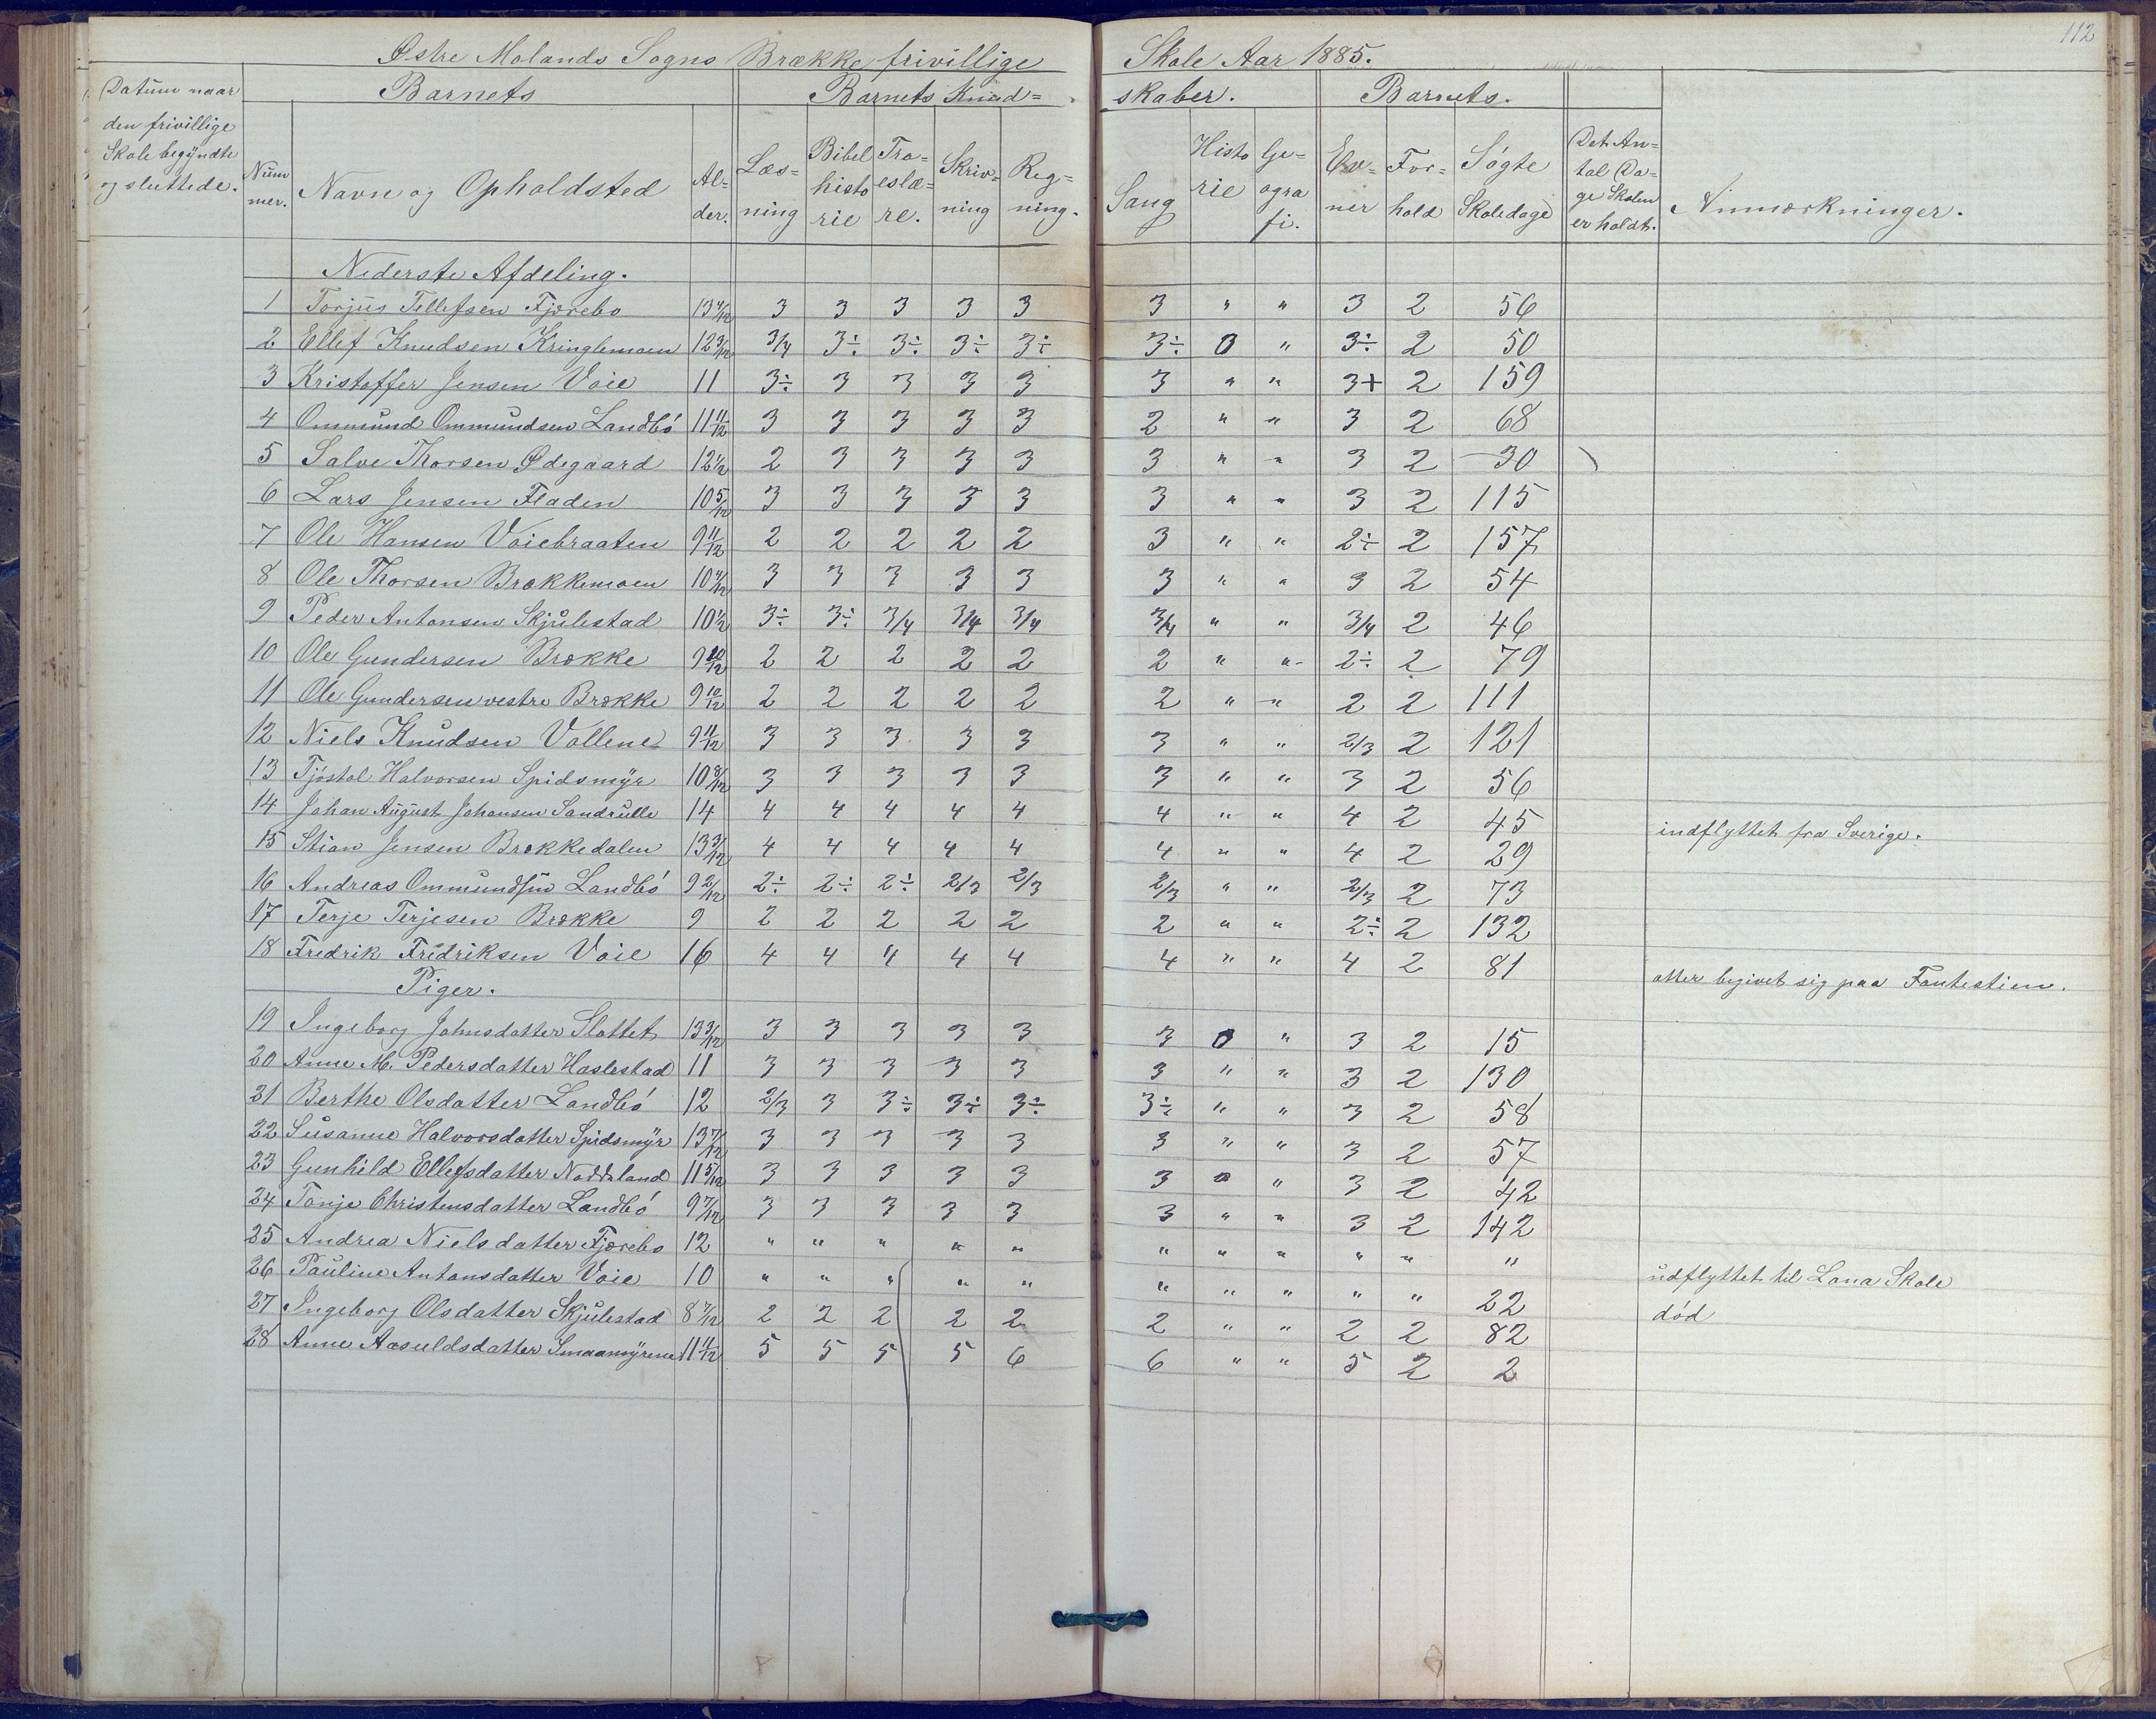 112
Østre Molands Sogns Brække frivillige Skole Aar 1885.
Datum naar den frivillige Skole begyndte og sluttede.
Barnets
Barnets Kund= skaber.
Barnets.
Num mer. Navn og Opholdsted Al= der. Læs= ning Bibel histo rie Tro= eslæ= re. Skriv= ning Reg= ning. Sang Histo rie Ge= ogra fi. Ev= ner For= hold Søgte Skoledage Det An= tal Da= ge Skolen er holdt. Anmærkninger.
Nederste Afdeling.
1 Torjus Tellefsen Fjærebo 3 3 3 3 3 3 " " 3 2 56
2 Ellef Knudsen Kringlemoen 12 3/12 3/4 3÷ 3÷ 3÷ 3÷ 3÷ 0 " 3÷ 2 50
3 Kristoffer Jensen Voie 11 3÷ 3 3 3 3 3 " " 3+ 2 159
4 Ommund Ommundsen Landbö 11 11/12 3 3 3 3 3 2 " " 3 2 68
5 Salve Thorsen Ødegaard 12 1/2 2 3 3 3 3 3 " " 3 2 30
6 Lars Jensen Fladen 10 5/12 3 3 3 3 3 3 " " 3 2 115
7 Ole Hansen Voiebraaten 9 11/12 2 2 2 2 2 3 " " 2÷ 2 157
8 Ole Thorsen Brækkemoen 3 3 3 3 3 3 " " 3 2 54
9 Peder Antonsen Skjulestad 10 1/2 3÷ 3÷ 3/4 3/4 3/4 3/4 " " 3/4 2 46
10 Ole Gundersen Brække 9 10/12 2 2 2 2 2 2 " " 2÷ 2 79
11 Ole Gundersen vestre Brække 9 10/12 2 2 2 2 2 2 " " 2 2 111
12 Niels Knudsen Vollene 9 11/12 3 3 3 3 3 3 " " 2/3 2 121
13 Tjöstol Halvorsen Spidsmyr 10 8/12 3 3 3 3 3 3 " " 3 2 56
14 Johan August Johansen Sandrulle 14 4 4 4 4 4 4 " " 4 2 45 indflyttet fra Sverige.
15 Stian Jensen Brækkedalen 13 3/12 4 4 4 4 4 4 " " 4 2 29
16 Andreas Ommundsen Landbö 9 2/12 2÷ 2÷ 2÷ 2/3 2/3 2/3 " " 2/3 2 73
17 Terje Terjesen Brække 9 2 2 2 2 2 2 " " 2÷ 2 132
18 Fredrik Fredriksen Voie 16 4 4 4 4 4 4 " " 4 2 81 atter begivet sig paa Fantestien.
Piger.
19 Ingeborg Johnsdatter Slottet 13 3/12 3 3 3 3 3 3 0 " 3 2 15
20 Anne M. Pedersdatter Haslestad 11 3 3 3 3 3 3 " " 3 2 130
21 Berthe Olsdatter Landbö 12 2/3 3 3÷ 3÷ 3÷ 3÷ " " 3 2 58
22 Susanne Halvorsdatter Spidsmyr 13 7/12 3 3 3 3 3 3 " " 3 2 57
23 Gunhild Ellefsdatter 11 5/12 3 3 3 3 3 3 0 " 3 2 42
24 Tonje Christensdatter Landbö 9 7/12 3 3 3 3 3 3 " " 3 2 142
25 Andrea Nielsdatter Fjærebo 12 " " " " " " " " " " "
26 Pauline Antonsdatter Voie 10 " " " " " " " " " " 22 udflyttet til Lana Skole
27 Ingeborg Olsdatter Skjulestad 8 7/12 2 2 2 2 2 2 " " 2 2 82 död
28 Anne Aasuldsdatter Smaamyrene 11 11/12 5 5 5 5 6 6 " " 5 2 2